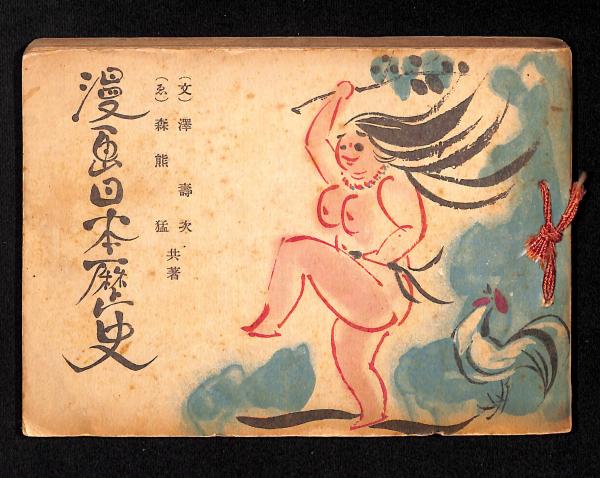 漫画日本歴史
（文）澤壽次
（ゑ）森熊猛
共著